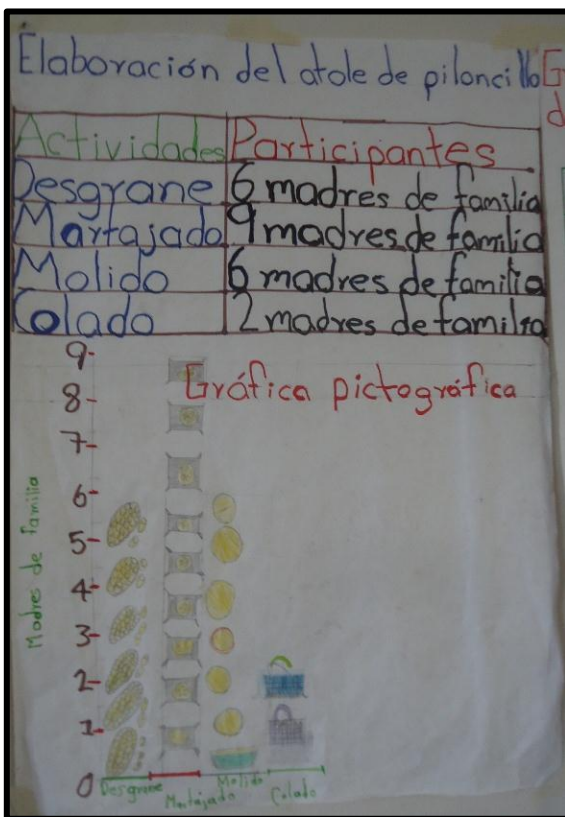 Elaboración del atole de piloncillo
Actividades Participantes
Desgrane 6 madres de familia
Martajado 9 madres de familia
Molido 6 madres de familia
Colado 2 madres de familia
Gráfica pictográfica
Madres de familia
9
8
7
6
5
4
3
2
1
0
Desgrane Martajado Molido Colado